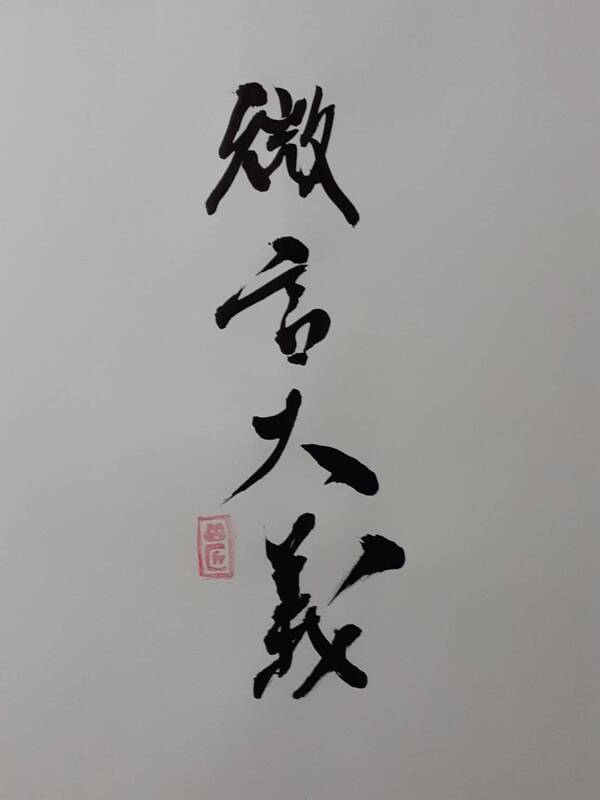 微言大義